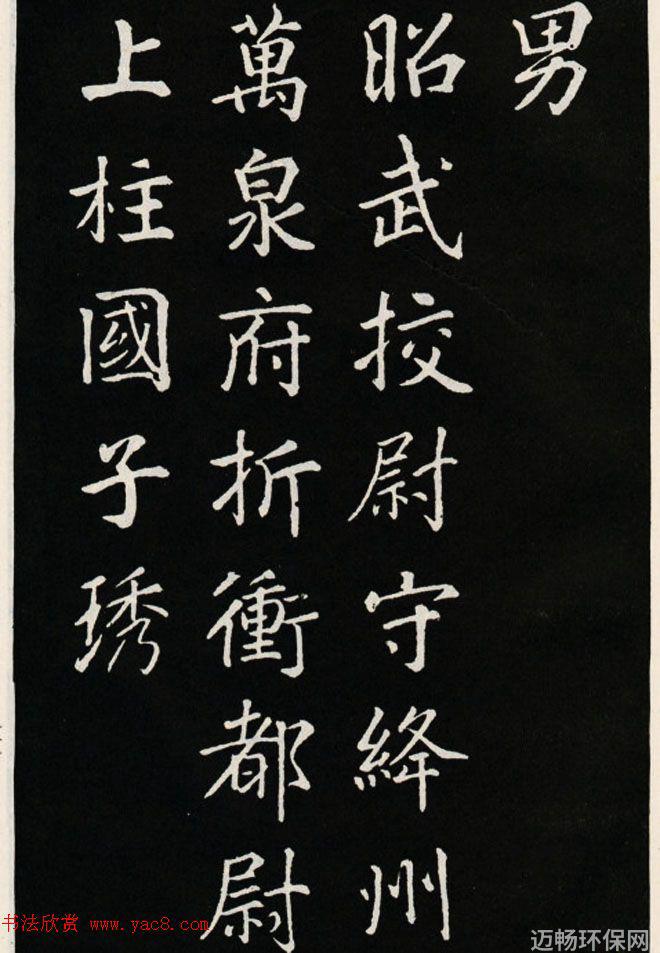 男
昭武挍尉守絳州
萬泉府折衝都尉
上柱國子琇
书法欣赏 www.yac8.com
迈畅环保网